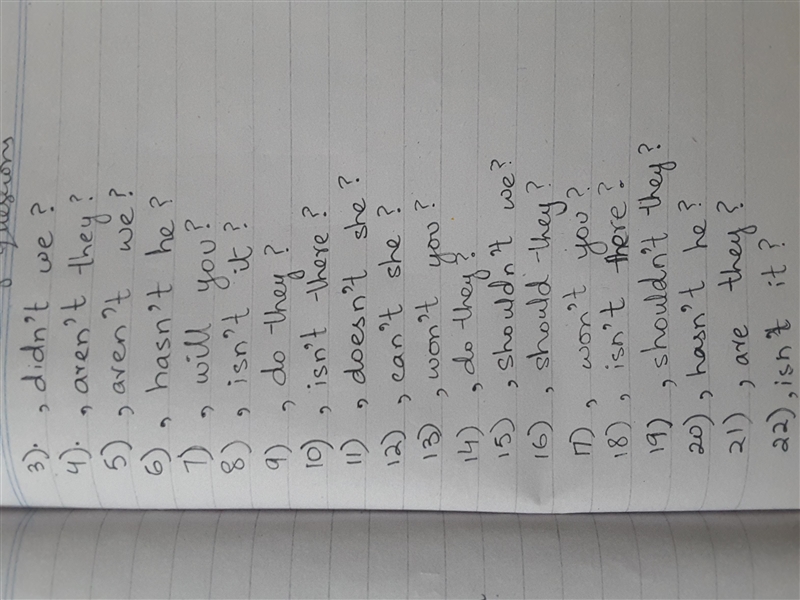 questions
3). , didn't we?
4). , aren't they?
5) , aren't we?
6) , hasn't he?
7) , will you?
8) , isn't it?
9) , do they?
10) , isn't there?
11) , doesn't she?
12) , can't she?
13) , won't you?
14) , do they?
15) , shouldn't we?
16) , should they?
17) , won't you?
18) , isn't there?
19) , shouldn't they?
20) , hasn't he?
21) , are they?
22) , isn't it?